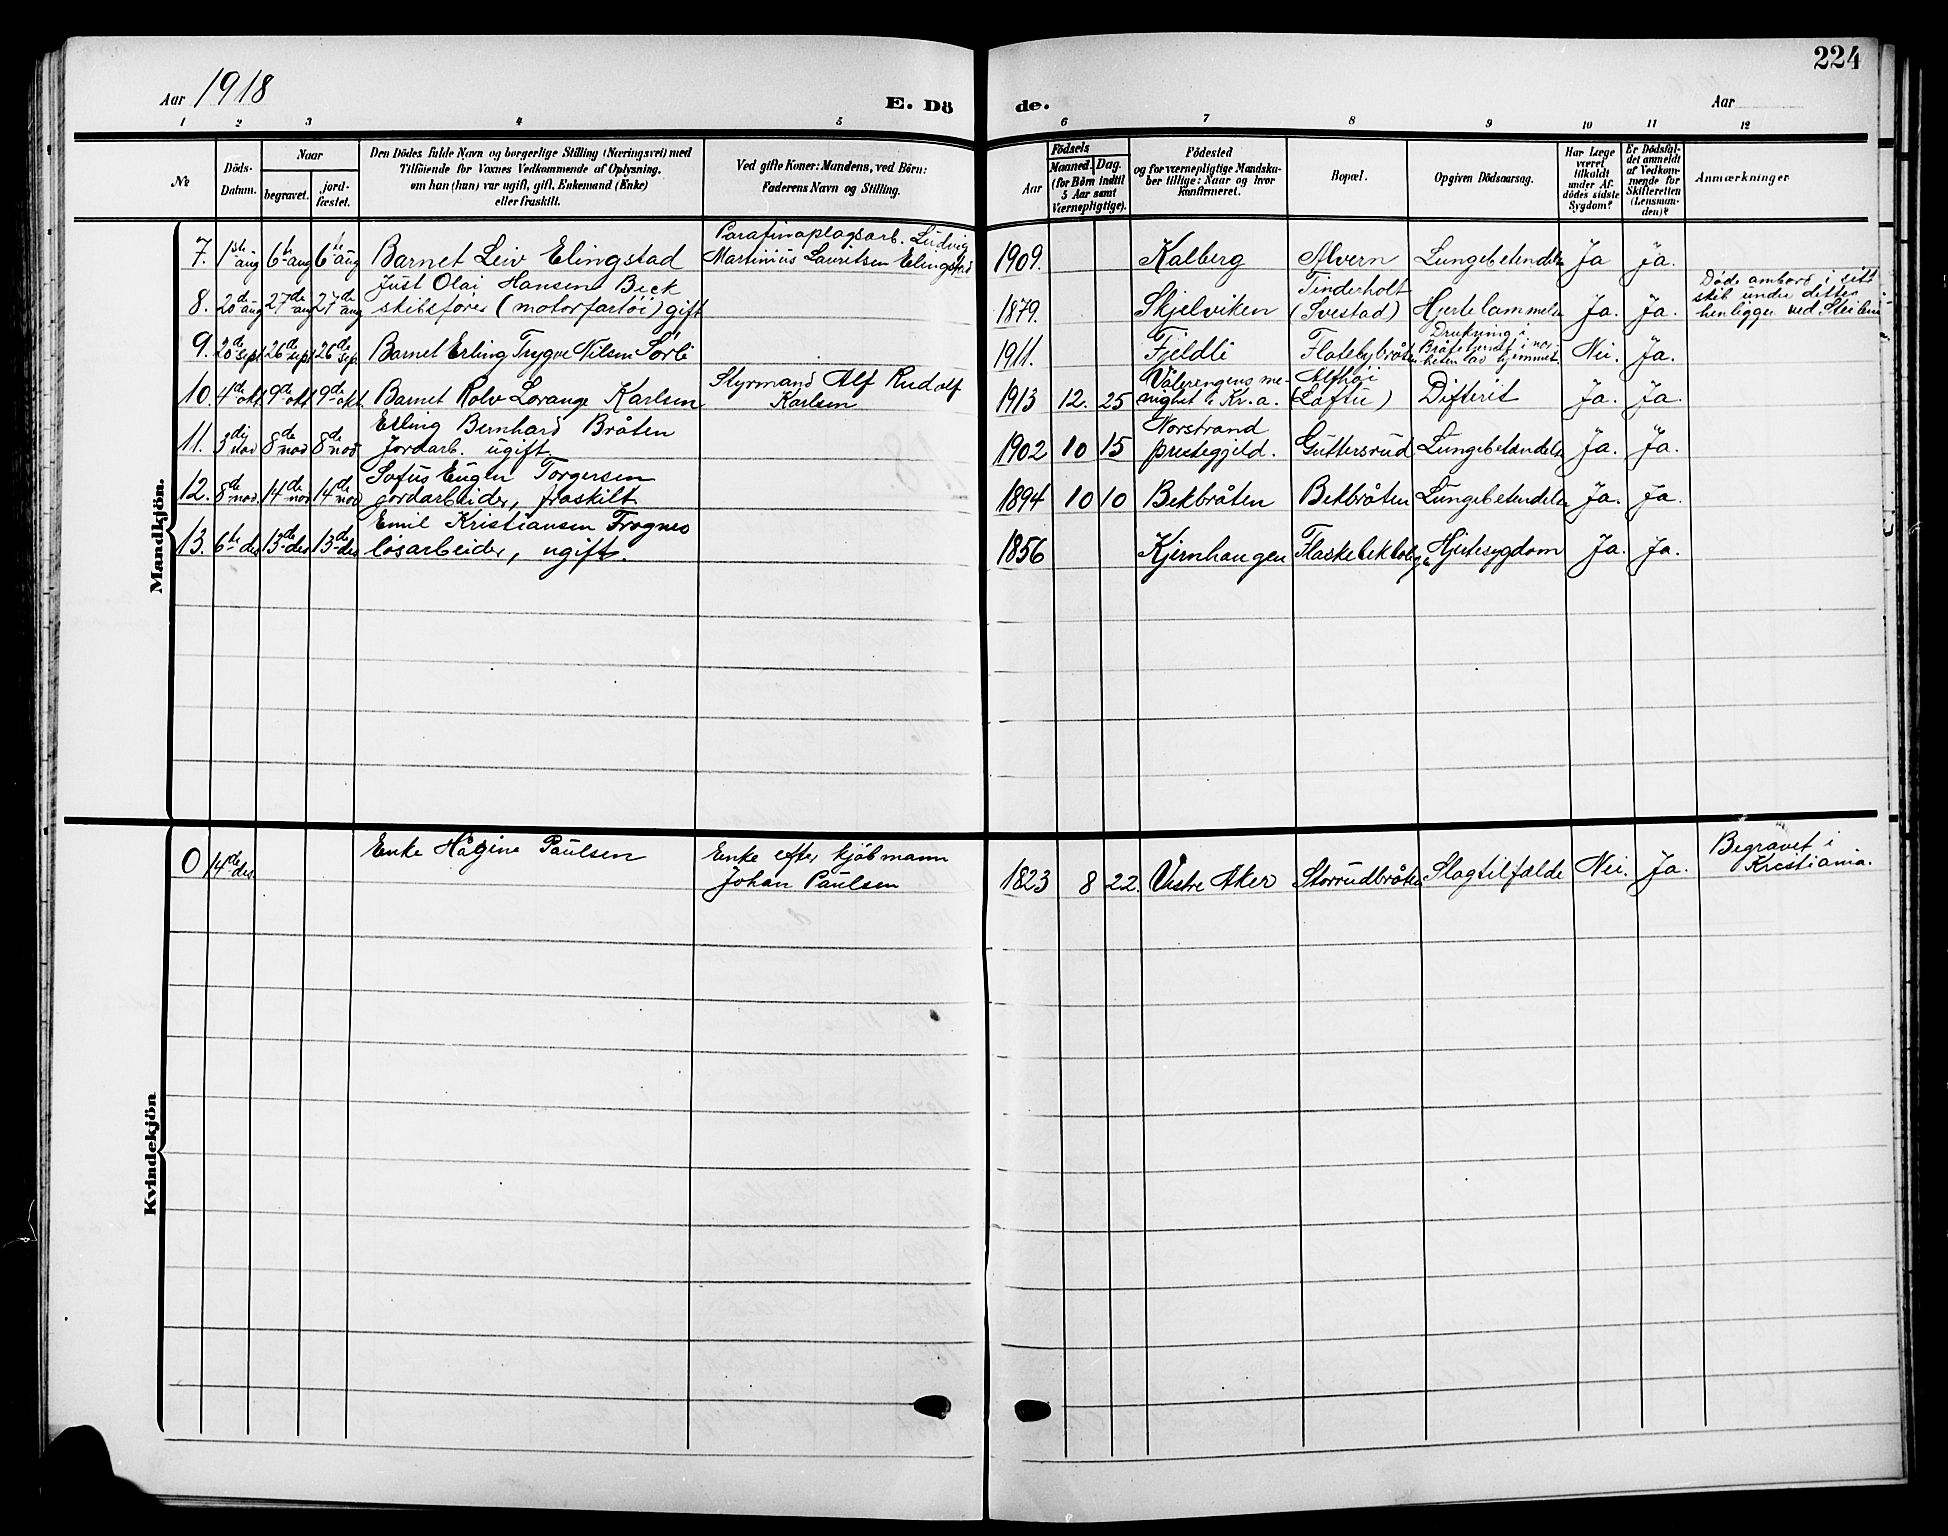 224
Aar 1918
E. Dö de.
Aar
1 2 3 4 5 6 7 8 9 10 11 12
№
Döds-
Datum.
Naar
begravet.
jord-
fæstet.
Den Dödes fulde Navn og borgerlige Stilling (Næringsvei) med
Tilföiende for Voxnes Vedkommende af Oplysning,
om han (hun) var ugift, gift, Enkemand (Enke)
eller fraskilt.
Ved gifte Koner: Mandens, ved Börn:
Faderens Navn og Stilling.
Födsels
Aar
Maaned. Dag.
(for Börn indtil
5 Aar samt
Værnepligtige).
Födested
og for værnepligtige Mandska-
ber tillige: Naar og hvor
konfirmeret.
Bopæl.
Opgiven Dödsaarsag.
Har Læge
været
tilkaldt
under Af-
dödes sidste
Sygdom?
Er Dödsfal-
det anmeldt
af Vedkom-
mende for
Skifteretten
(Lensman-
den)?
Anmærkninger
Mandkjön.
7. 1ste aug 6te aug 6te aug Barnet Leiv Elingstad
Parafinoplagsarb. Ludvig
Martinius Lauritsen Elingstad
1909. Kalberg Alvern Lungebetendelse Ja Ja.
8. 20de aug 27de aug 27de aug Just Olai Hansen Beck
skibsfører (motorfartöi) gift
1879. Skjelviken Tinderholt
(Svestad) Hjertelammelse Ja. Ja.
Døde ombord i sitt
skib under dettes
henligger ved Steilene
9. 20de sept 26de sept 26de sep. Barnet Erling Trygve Nilsen Sørli
1911. Fjeldli Flatebybråten Drukning i
Bråtetjernet i nær-
heten av hjemmet. Nei. Ja.
10. 4de okt. 9de okt 9de okt. Barnet Rolv Lorange Karlsen
Styrmand Alf Rudolf
Karlsen
1913 12. 25 Vålerengens me-
nighet i Kr.a. Alfhøi
Difterit Ja. Ja.
11. 3die nov 8de nov 8de nov Erling Bernhard Bråten
Jordarb. ugift.
1902 10 15 Norstrand
prestegjeld. Guttersrud Lungebetændelse Ja. Ja.
12. 8de nov. 14de nov 14de nov Sofus Eugen Torgersen
jordarbeider, fraskilt
1894 10 10 Bekbråten Bekbråten Lungebetendelse Ja. Ja.
13. 6te des 13de des 13de des Emil Kristiansen Frogner
løsarbeider, ugift.
1856 Kjernhaugen Hjertesygdom Ja. Ja.
Kvindekjön
0 14de des Enke Hågine Paulsen
Enke efter kjøbmann
Johan Paulsen
1823 8 22. Vestre Aker Storrudbråten Slagtilfælde Nei. Ja.
Begravet i
Kristiania.